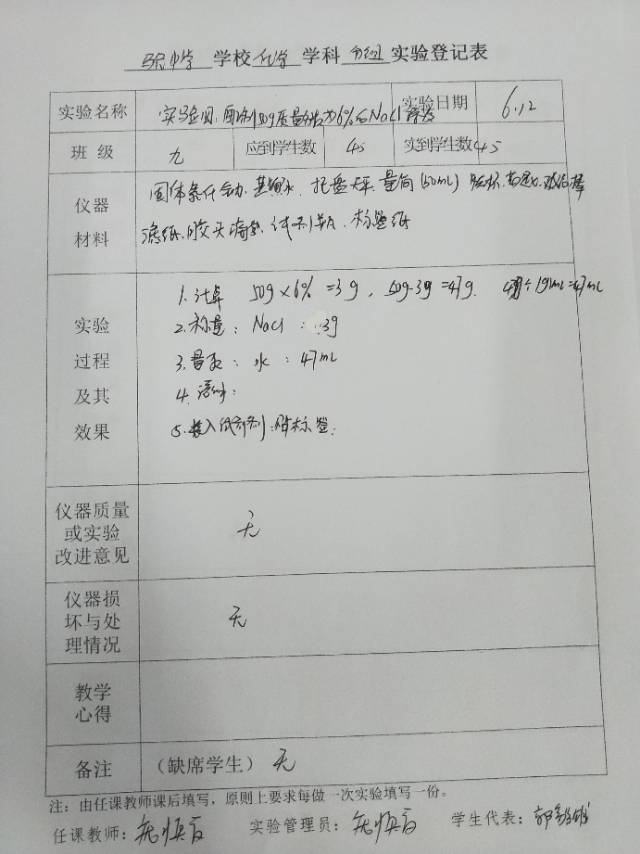 中学 学校 化学 学科 分组 实验登记表
实验名称 配制50g质量分数为6%的NaCl溶液 实验日期 6.12
班 级 九 应到学生数 45 实到学生数 45
仪器 固体氯化钠、蒸馏水、托盘天平、量筒(50mL)
材料 滤纸、胶头滴管、试剂瓶、标签纸
1.计算 50g×6%=3g, 50g-3g=47g.
实验 2.称量: NaCl: 3g
过程 3.量取: 水: 47mL
及其 4.溶解:
效果 5.装入试剂瓶 贴标签.
仪器质量
或实验
改进意见
无
仪器损
坏与处
理情况
无
教学
心得
备注 (缺席学生) 无
注:由任课教师课后填写,原则上要求每做一次实验填写一份。
任课教师: 实验管理员: 学生代表: